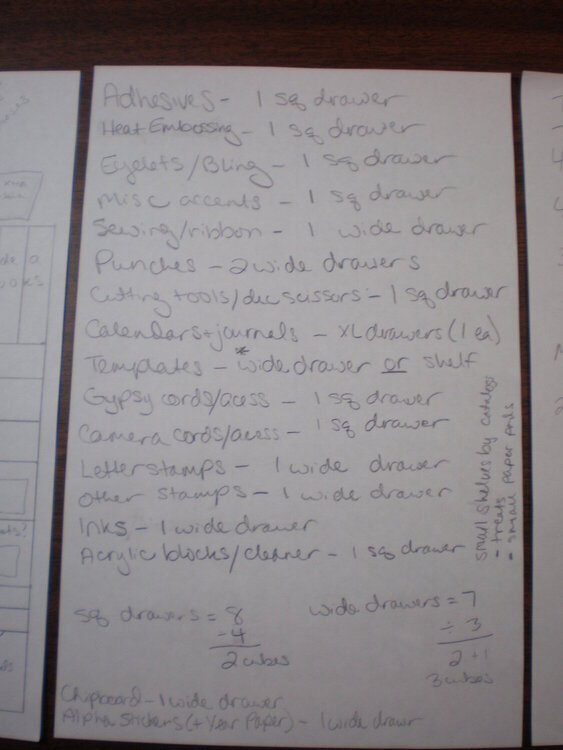 Adhesives - 1 sq drawer
Heat Embossing - 1 sq drawer
Eyelets/Bling - 1 sq drawer
Misc accents - 1 sq drawer
Sewing/ribbon - 1 wide drawer
Punches - 2 wide drawers
Cutting tools/dec scissors - 1 sq drawer
Calendars + journals - XL drawers (1 ea)
Templates - *wide drawer or shelf
Gypsy cords/acess - 1 sq drawer
Camera cords/acess - 1 sq drawer
Letter stamps - 1 wide drawer
Other stamps - 1 wide drawer
Inks - 1 wide drawer
Acrylic blocks/cleaner - 1 sq drawer
small shelves by catalogs
- treats
• small paper pads
sq drawers = 8
÷4
2 cubes
wide drawers = 7
÷ 3
2 +1
3 cubes
Chipboard - 1 wide drawer
Alpha stickers (+ Year Paper) - 1 wide drawer